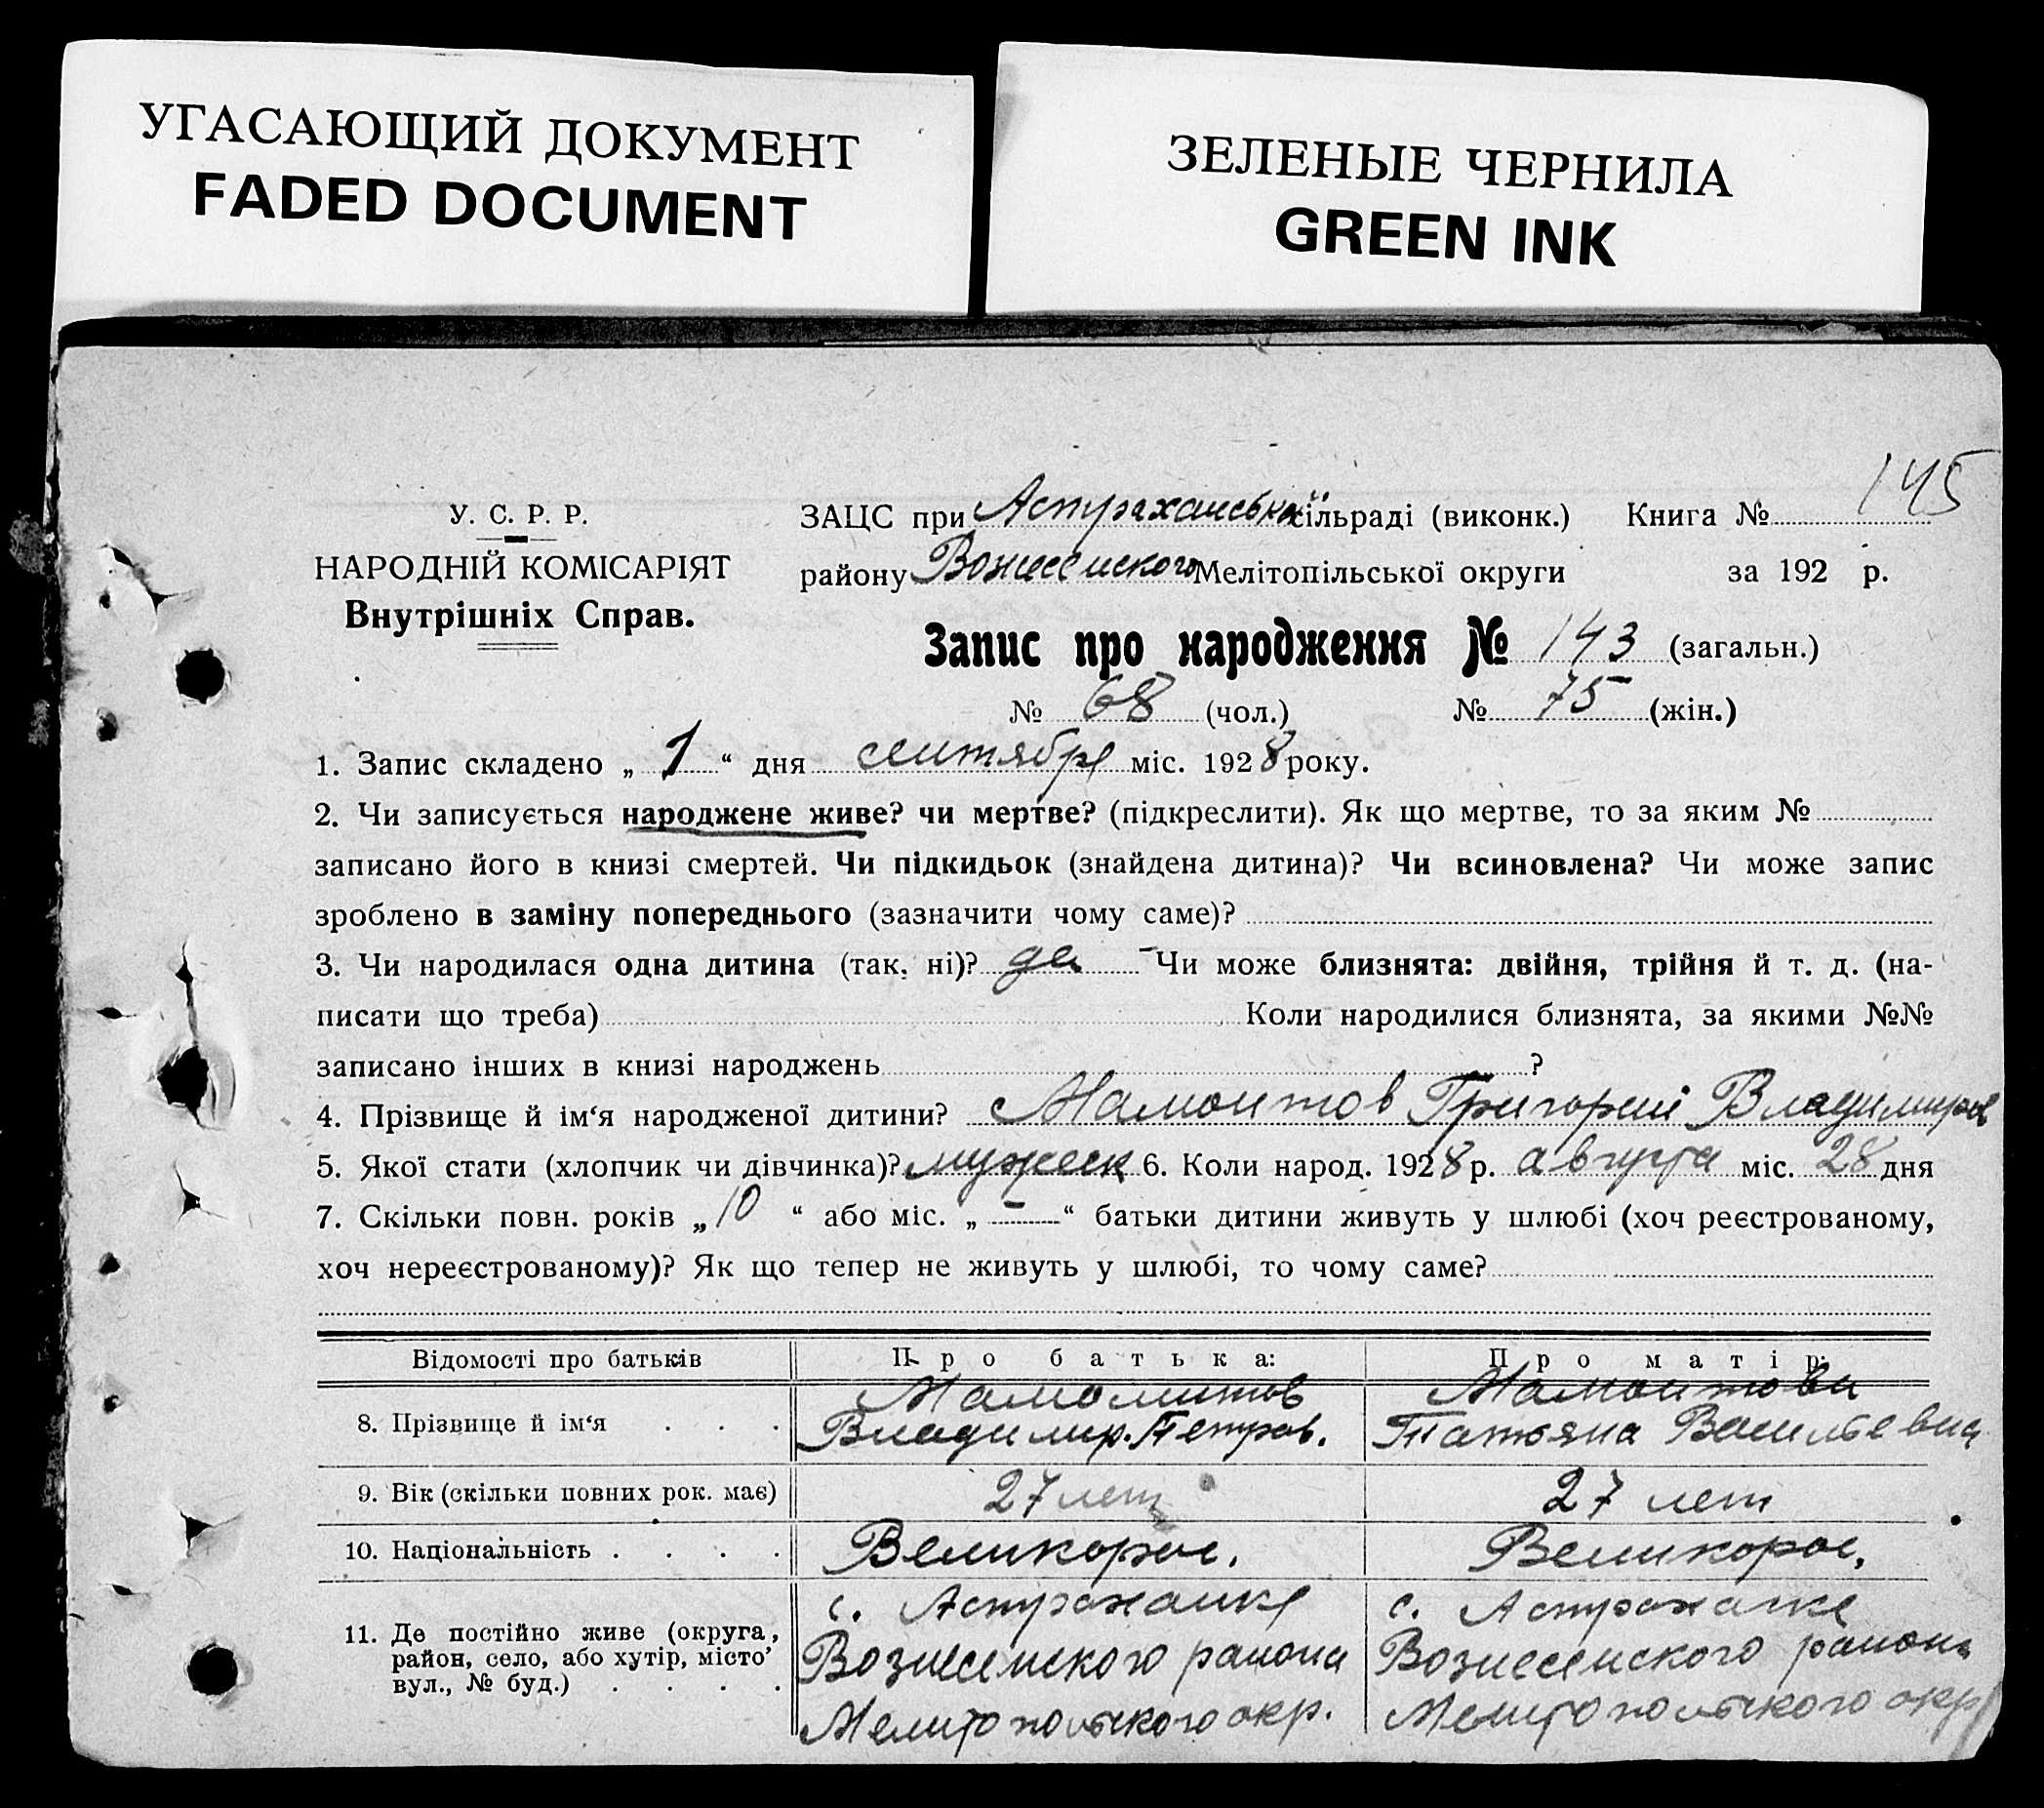 УГАСАЮЩИЙ ДОКУМЕНТ
FADED DOCUMENT
ЗЕЛЕНЫЕ ЧЕРНИЛА
GREEN INK
145
У. С. Р. Р.
НАРОДНІЙ КОМІСАРІЯТ
Внутрішніх Справ.
ЗАЦС при Астраханській сільраді (виконк.) Книга №
району Вознесенского Мелітопільської округи за 192 р.
Запис про народження № 143 (загальн.)
№ 68 (чол.) № 75 (жін.)
1. Запис складено „ 1 “ дня сентября міс. 1928 року.
2. Чи записується народжене живе? чи мертве? (підкреслити). Як що мертве, то за яким №
записано його в книзі смертей. Чи підкидьок (знайдена дитина)? Чи всиновлена? Чи може запис
зроблено в заміну попереднього (зазначити чому саме)?
3. Чи народилася одна дитина (так, ні)? да - Чи може близнята: двійня, трійня й т. д. (на-
писати що треба) Коли народилися близнята, за якими №№
записано інших в книзі народжень ?
4. Прізвище й ім‘я народженої дитини? Мамонтов Григорий Владимиров
5. Якої стати (хлопчик чи дівчинка)? мужеск 6. Коли народ. 1928 р. августа міс. 28 дня
7. Скільки повн. років „ 10 “ або міс. „ - “ батьки дитини живуть у шлюбі (хоч реєстрованому,
хоч нереєстрованому)? Як що тепер не живуть у шлюбі, то чому саме?
Відомості про батьків Про батька: Про матір:
8. Прізвище й ім‘я . . .
Мамонтов
Владимир. Петров.
Мамонтова
Татьяна Васильевна
9. Вік (скільки повних рок. має) 27 лет 27 лет
10. Національність . . . . Великорос. Великорос.
11. Де постійно живе (округа,
район, село, або хутір, місто’
вул., № буд.) . . . .
с. Астраханке
Вознесенского района
Мелитопольского окр.
с. Астраханке
Вознесенского района
Мелитопольского окр